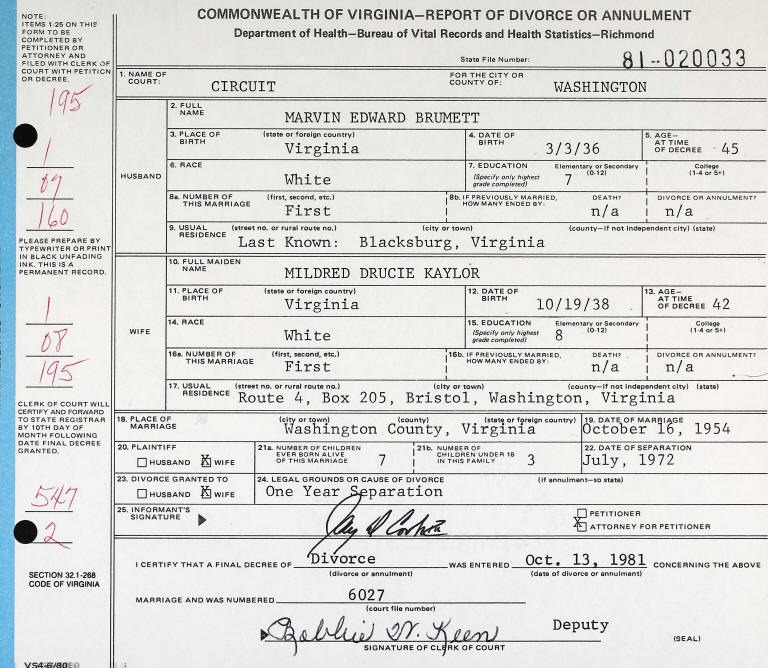 COMMONWEALTH OF VIRGINIA—REPORT OF DIVORCE OR ANNULMENT
Department of Health—Bureau of Vital Records and Health Statistics—Richmond
State File Number: 81--020033
NOTE:
ITEMS 1-25 ON THIS
FORM TO BE
COMPLETED BY
PETITIONER OR
ATTORNEY AND
FILED WITH CLERK OF
COURT WITH PETITION
OR DECREE.
195
1
09
160
PLEASE PREPARE BY
TYPEWRITER OR PRINT
IN BLACK UNFADING
INK. THIS IS A
PERMANENT RECORD.
1
08
195
CLERK OF COURT WILL
CERTIFY AND FORWARD
TO STATE REGISTRAR
BY 10TH DAY OF
MONTH FOLLOWING
DATE FINAL DECREE
GRANTED.
547
2
SECTION 32.1-268
CODE OF VIRGINIA
VS4-6/80
1. NAME OF COURT: CIRCUIT FOR THE CITY OR COUNTY OF: WASHINGTON
HUSBAND
2. FULL NAME MARVIN EDWARD BRUMETT
3. PLACE OF BIRTH (state or foreign country) Virginia 4. DATE OF BIRTH 3/3/36 5. AGE— AT TIME OF DECREE 45
6. RACE White 7. EDUCATION (Specify only highest grade completed) Elementary or Secondary (0-12) 7 College (1-4 or 5+)
8a. NUMBER OF THIS MARRIAGE (first, second, etc.) First 8b. IF PREVIOUSLY MARRIED, HOW MANY ENDED BY: DEATH? n/a DIVORCE OR ANNULMENT? n/a
9. USUAL RESIDENCE (street no. or rural route no.) (city or town) (county—if not independent city) (state)
Last Known: Blacksburg, Virginia
WIFE
10. FULL MAIDEN NAME MILDRED DRUCIE KAYLOR
11. PLACE OF BIRTH (state or foreign country) Virginia 12. DATE OF BIRTH 10/19/38 13. AGE— AT TIME OF DECREE 42
14. RACE White 15. EDUCATION (Specify only highest grade completed) Elementary or Secondary (0-12) 8 College (1-4 or 5+)
16a. NUMBER OF THIS MARRIAGE (first, second, etc.) First 16b. IF PREVIOUSLY MARRIED, HOW MANY ENDED BY: DEATH? n/a DIVORCE OR ANNULMENT? n/a
17. USUAL RESIDENCE (street no. or rural route no.) (city or town) (county—if not independent city) (state)
Route 4, Box 205, Bristol, Washington, Virginia
18. PLACE OF MARRIAGE (city or town) (county) (state or foreign country) Washington County, Virginia 19. DATE OF MARRIAGE October 16, 1954
20. PLAINTIFF HUSBAND X WIFE 21a. NUMBER OF CHILDREN EVER BORN ALIVE OF THIS MARRIAGE 7 21b. NUMBER OF CHILDREN UNDER 18 IN THIS FAMILY 3 22. DATE OF SEPARATION July, 1972
23. DIVORCE GRANTED TO HUSBAND X WIFE 24. LEGAL GROUNDS OR CAUSE OF DIVORCE (if annulment—so state) One Year Separation
25. INFORMANT'S SIGNATURE PETITIONER
X ATTORNEY FOR PETITIONER
I CERTIFY THAT A FINAL DECREE OF Divorce WAS ENTERED Oct. 13, 1981 CONCERNING THE ABOVE
(divorce or annulment) (date of divorce or annulment)
MARRIAGE AND WAS NUMBERED 6027
(court file number)
Bobbie W. Keen Deputy
SIGNATURE OF CLERK OF COURT (SEAL)